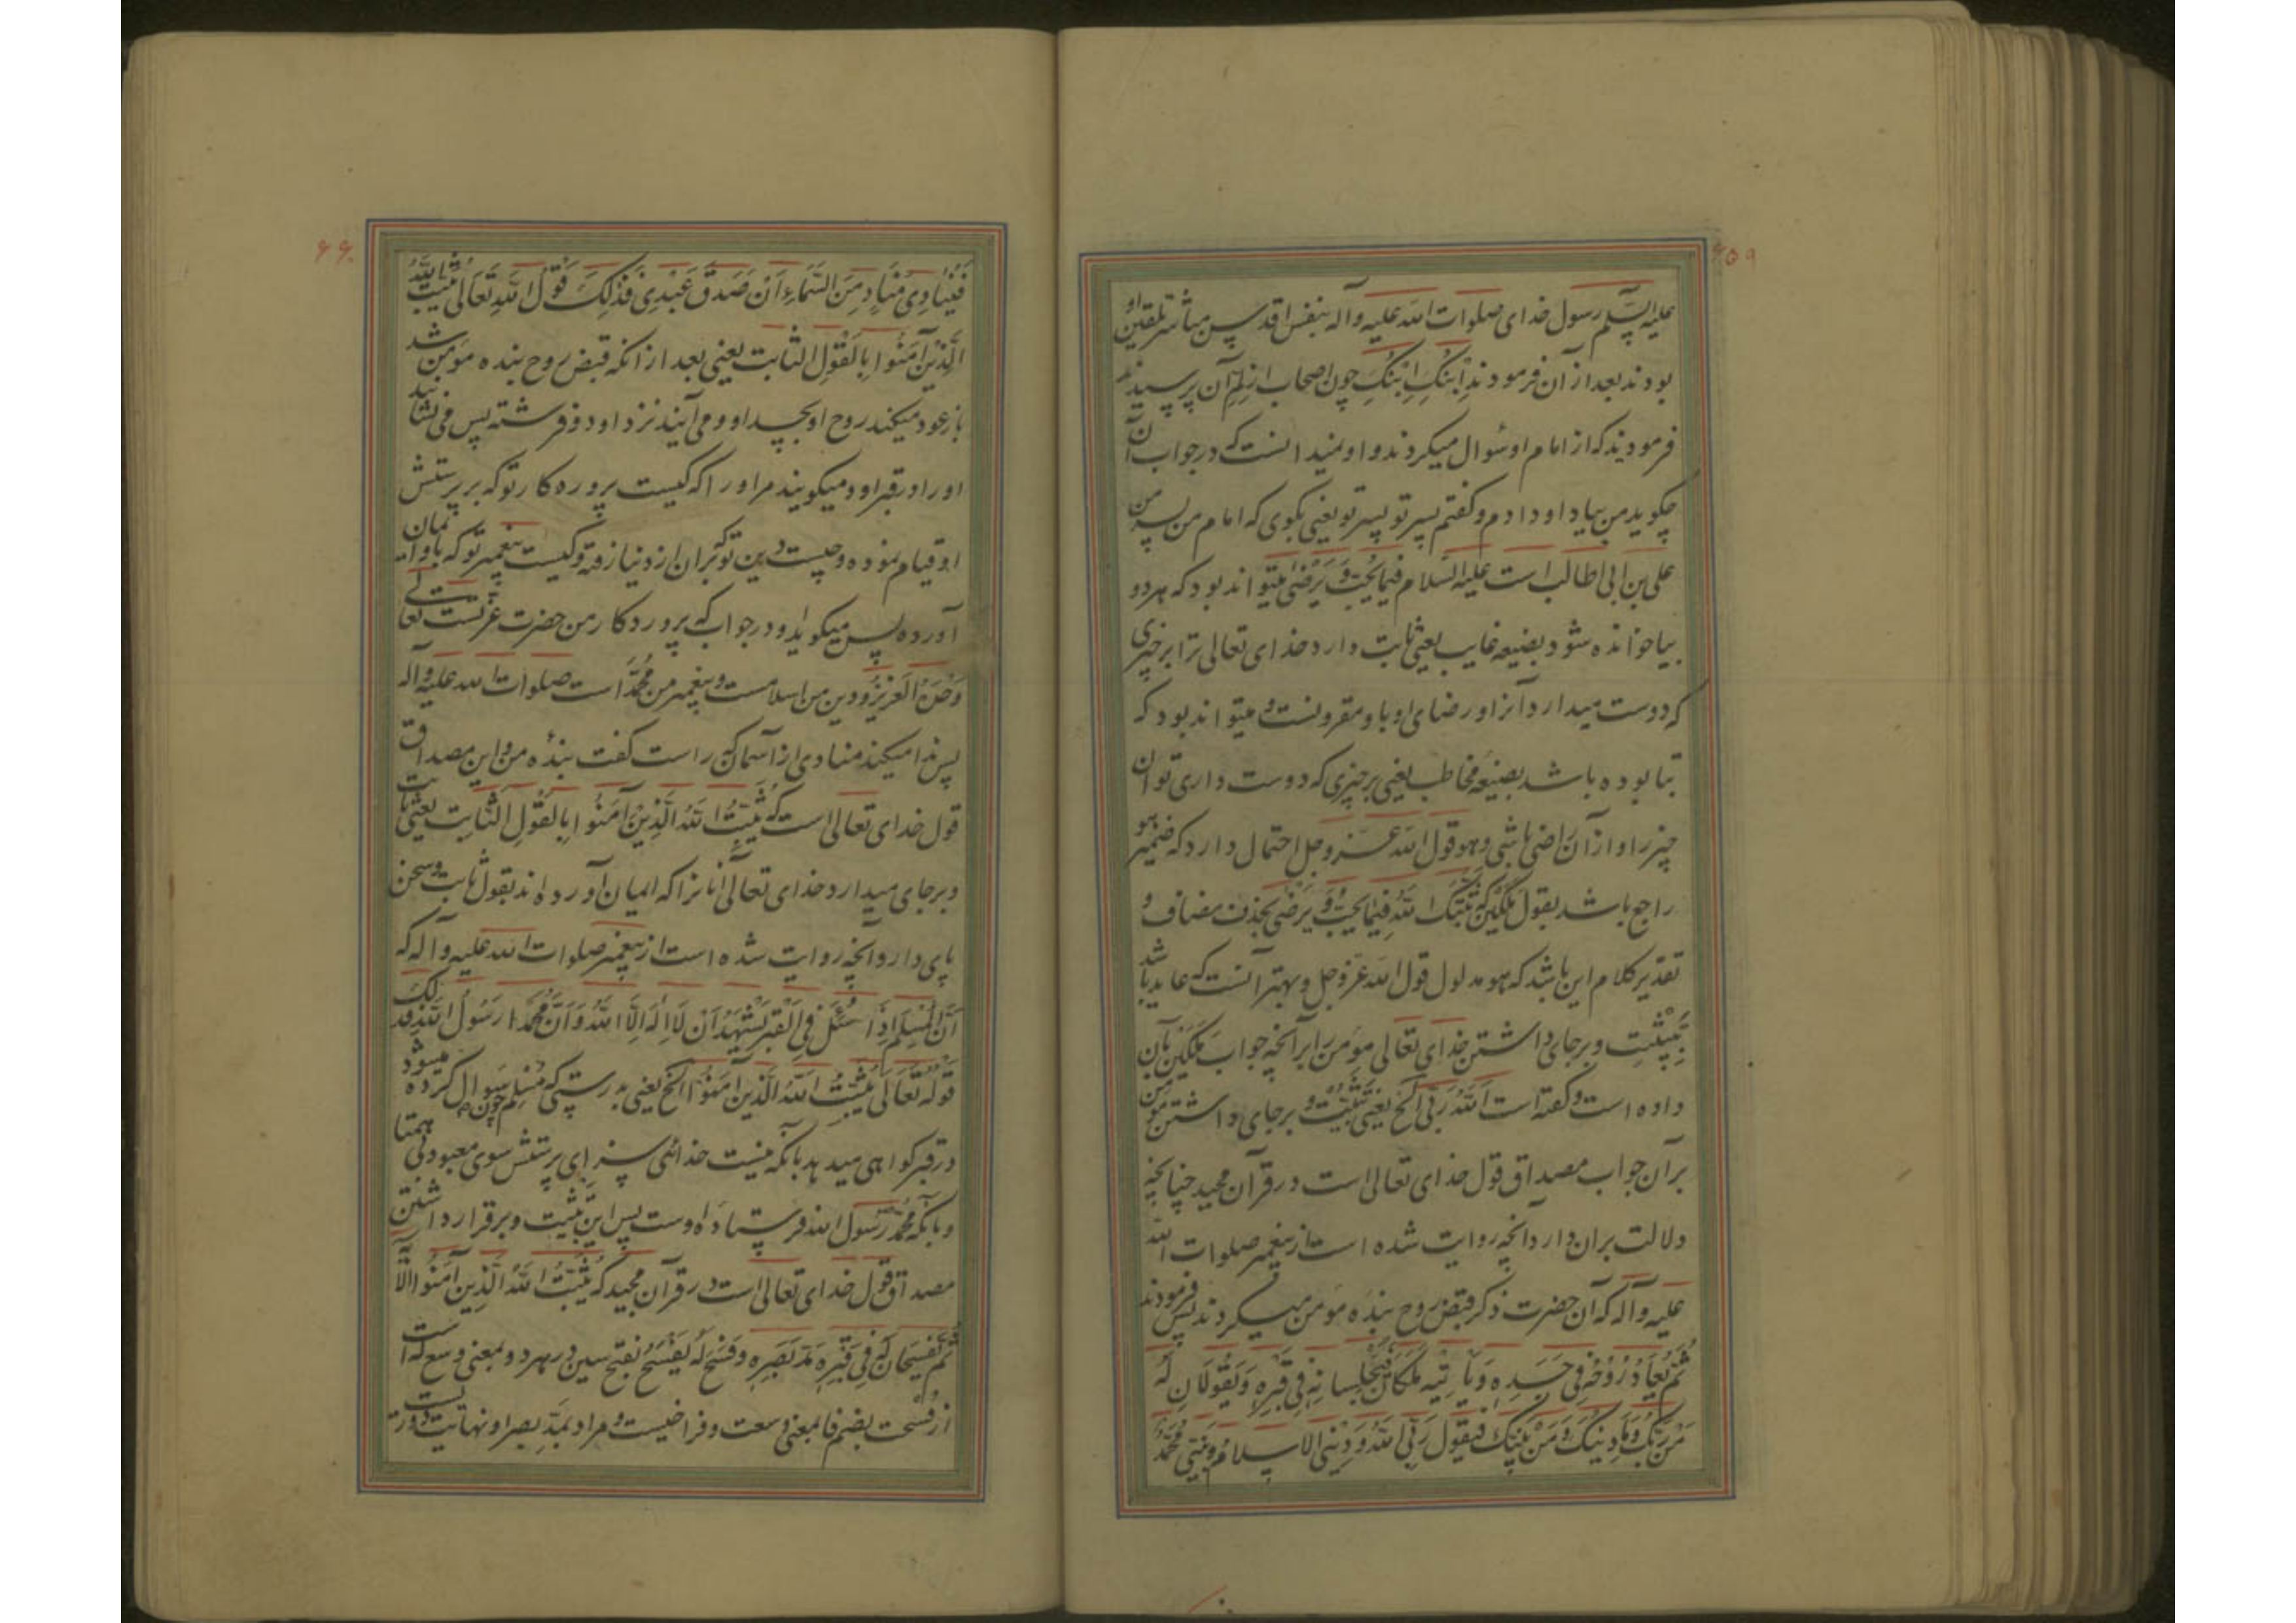 ۶۵۹
علیه السلم رسول خدای صلوات الله علیه وآله بنفس اقدس مباشر تلقین او
بودند بعد از آن فرمودند ابنک ابنک چون اصحاب از لم آن پرسیدند
فرمودند که از امام او سوال میکردند و او نمیدانست که در جواب آن
چگوید من بیاد او دادم و گفتم پسر تو پسر تو یعنی بگوی که امام من پسر من
علی بن ابی طالب است علیه السلام فیما یحب و یرضی میتواند بود که هر دو
بیا خوانده شود بصیغه غایب یعنی ثابت دارد خدای تعالی ترا بر خیری
که دوست میدارد آنرا و رضای او با و مقرونست و میتواند بود که
بتا بوده باشد بصیغه مخاطب یعنی بر چیزی که دوست داری تو آن
چیز را و از آن راضی باشی و هو قول الله عز وجل احتمال دارد که ضمیر هو
راجع باشد بقول ملکین که ثبتک الله فیما یحب و یرضی بحذف مضاف و
تقدیر کلام این باشد که هو مدلول قول الله عز وجل و بهتر آنست که عاید باشد
بتثبیت و برجای داشتن خدای تعالی مؤمن را بر آنچه جواب ملکین بآن
داده است و گفته است الله ربی الخ یعنی تثبیت و برجای داشتن مؤمن
بر آن جواب مصداق قول خدای تعالی است در قرآن مجید چنانچه
دلالت بر آن دارد آنچه روایت شده است از پیغمبر صلوات الله
علیه وآله که آن حضرت ذکر قبض روح بنده مؤمن میکردند پس فرمودند
ثم یعاد روحه فی جسده و یاتیه ملکان فیجلسانه فی قبره و یقولان له
من ربک و ما دینک و من نبیک فیقول ربی الله و دینی الاسلام و نبیی محمد
۶۶۰
فینادی مناد من السماء ان صدق عبدی فذلک قول الله تعالی یثبت الله
الذین آمنوا بالقول الثابت یعنی بعد از آنکه قبض روح بنده مؤمن شد
باز عود میکند روح او بجسد او و می آیند نزد او دو فرشته پس می نشانند
او را در قبر او و میگویند مر او را که کیست پروردکار تو که بر پرستش
او قیام نموده و چیست دین تو که بر آن از دنیا رفته و کیست پیغمبر تو که باو ایمان
آورده پس میگوید او در جواب که پروردکار من حضرت عزتست تعالی
وحده العزیز و دین من اسلامست و پیغمبر من محمد است صلوات الله علیه وآله
پس ندا میکند منادی از آسمان که راست گفت بنده من و این مصداق
قول خدای تعالی است که یثبت الله الذین آمنوا بالقول الثابت یعنی ثابت
و برجای میدارد خدای تعالی آنانرا که ایمان آورده اند بقول ثابت و سخن
پای دار و آنچه روایت شده است از پیغمبر صلوات الله علیه وآله که
ان المسلم اذا سئل فی القبر یشهد ان لا اله الا الله و ان محمدا رسول الله فذلک
قوله تعالی یثبت الله الذین آمنوا الخ یعنی بدرستی که مسلم چون سوال کرده میشود
در قبر گواهی میدهد بآنکه نیست خدائی سزای پرستش سوی معبود بی همتا
و بآنکه محمد رسول الله فرستاده اوست پس این تثبیت و برقرار داشتن
مصداق قول خدای تعالی است در قرآن مجید که یثبت الله الذین آمنوا الآیة
ثم یفسحان له فی قبره مد بصره و فسح له یفسح بفتح سین در هر دو بمعنی وسع له است
از فسحت بضم فا بمعنی وسعت و فراخیست و مراد بمد بصر او نهایت